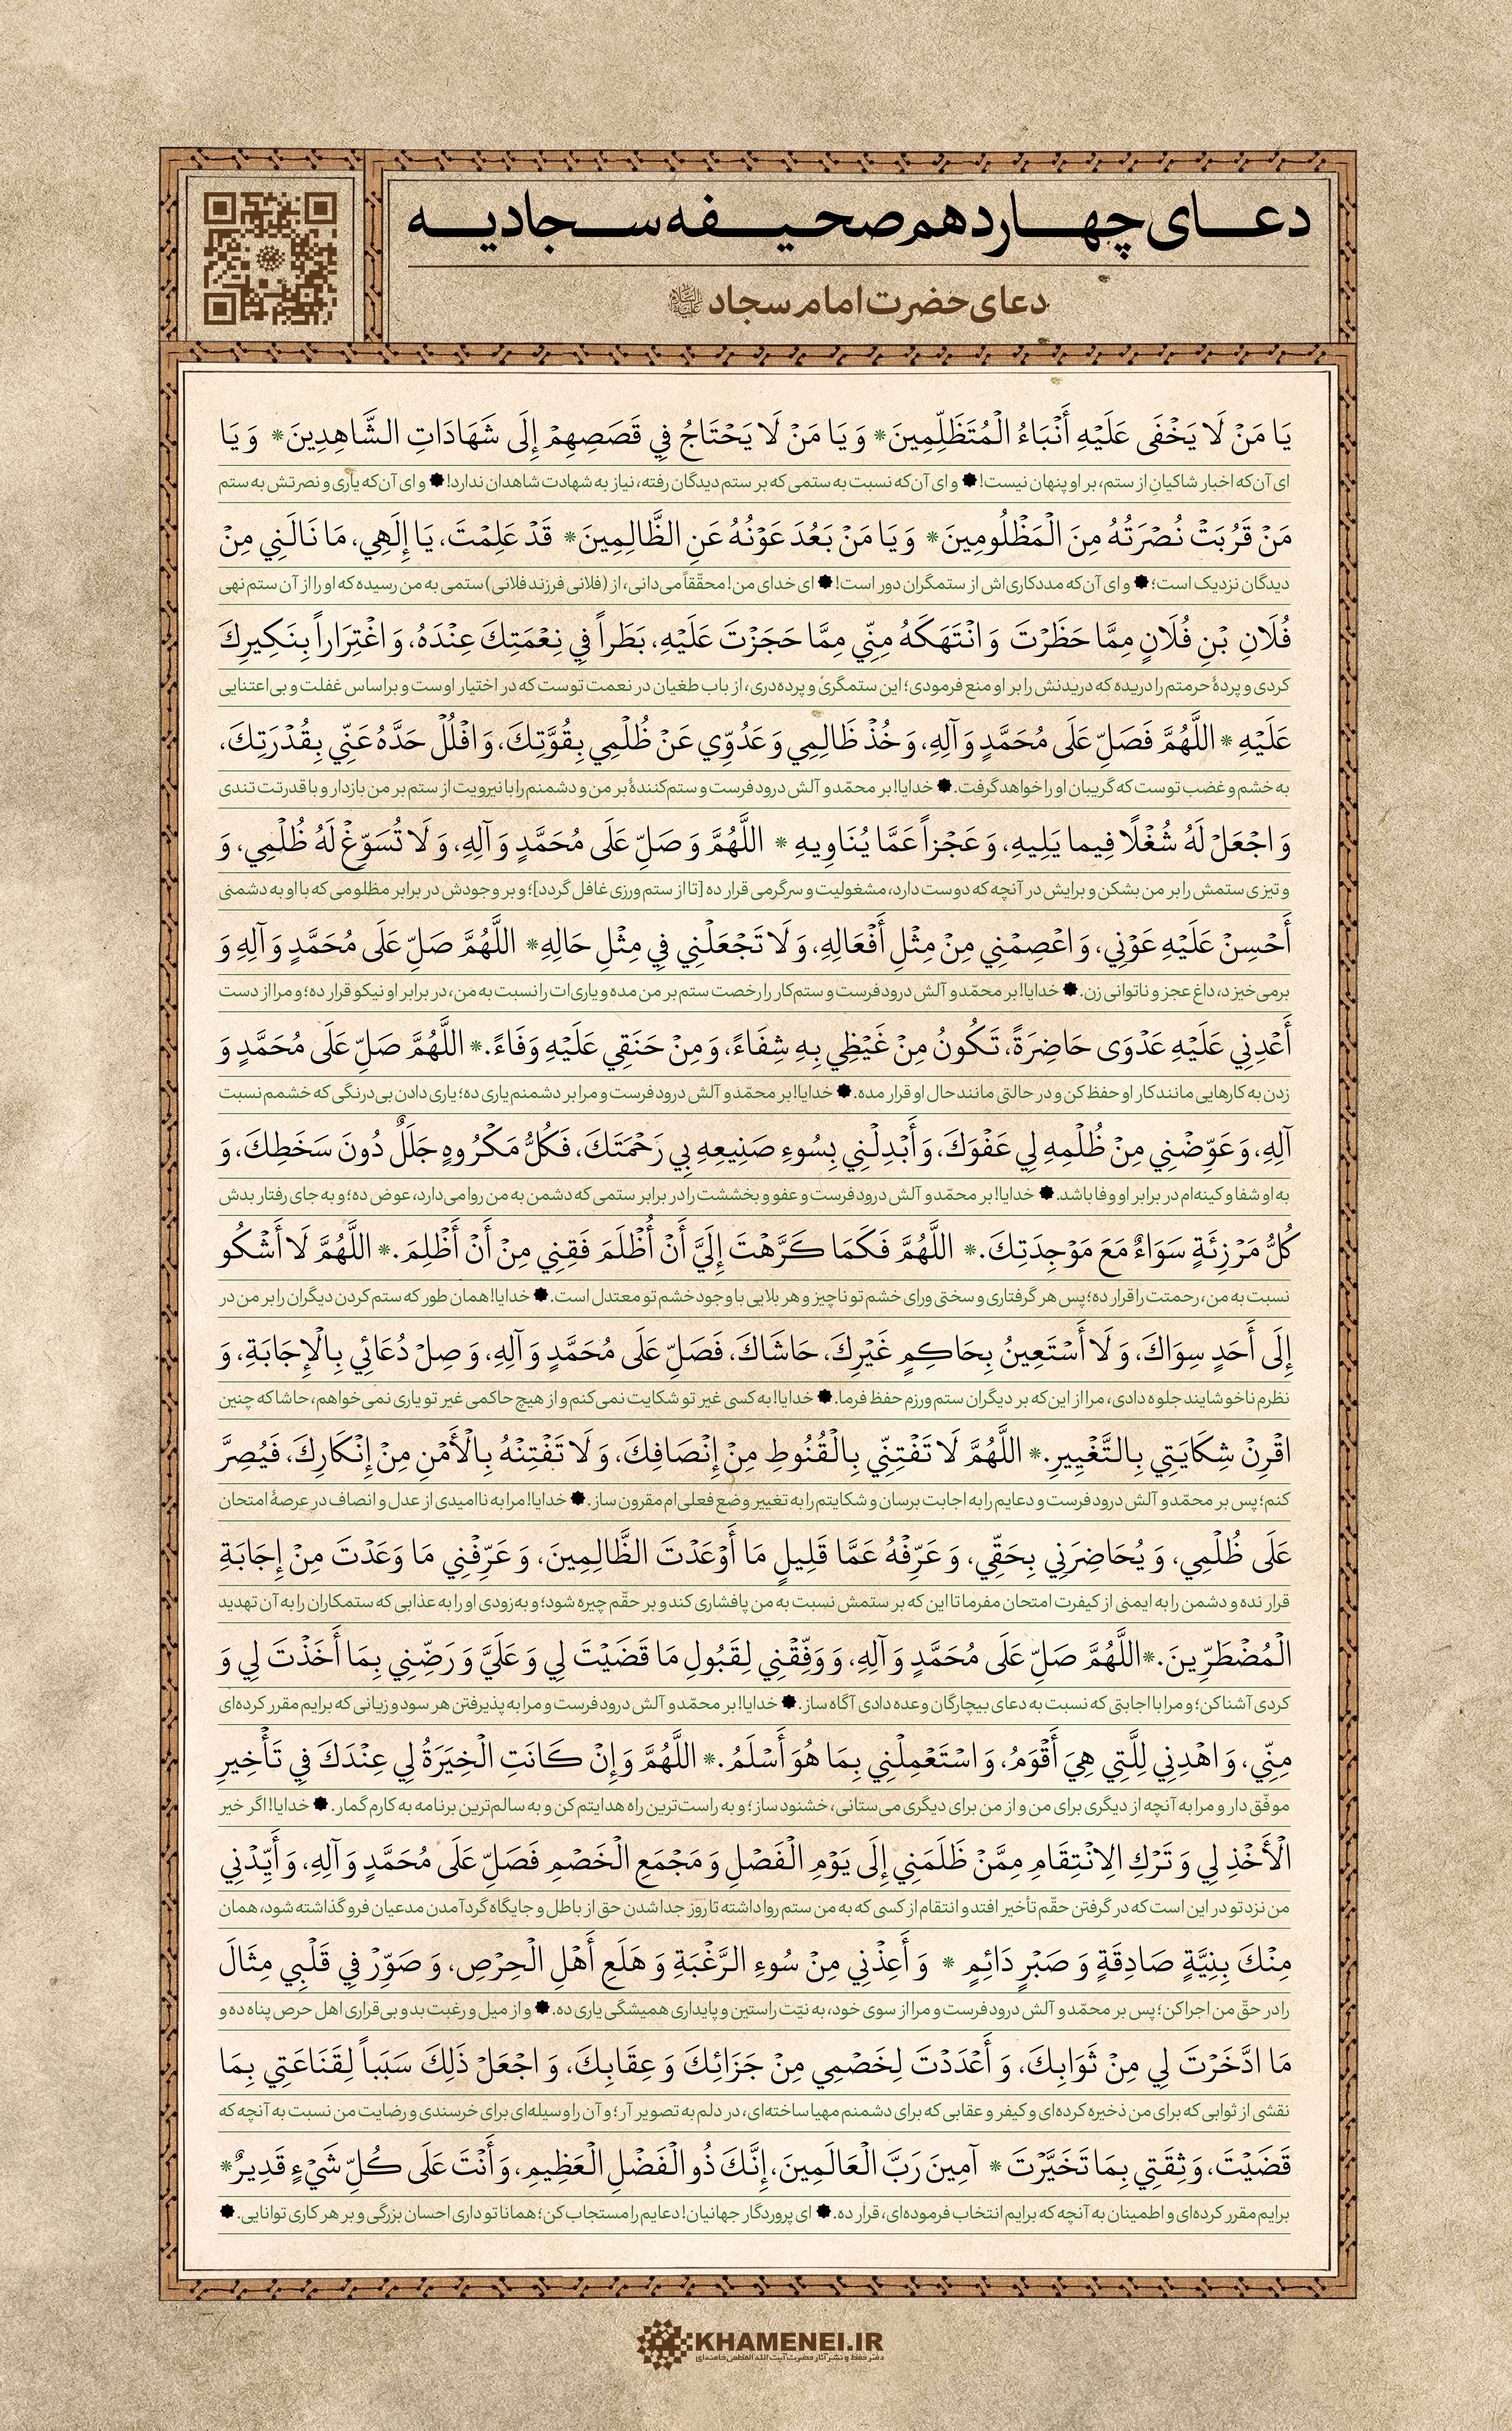 دعای چهاردهم صحیفه سجادیه
دعای حضرت امام سجاد علیه السلام
يَا مَنْ لَا يَخْفَى عَلَيْهِ أَنْبَاءُ الْمُتَظَلِّمِينَ* وَ يَا مَنْ لَا يَحْتَاجُ فِي قَصَصِهِمْ إِلَى شَهَادَاتِ الشَّاهِدِينَ* وَ يَا
ای آن‌که اخبار شاکیانِ از ستم، بر او پنهان نیست! * و ای آن‌که نسبت به ستمی که بر ستم‌دیدگان رفته، نیاز به شهادت شاهدان ندارد! * و ای آن‌که یاری و نصرتش به ستم
مَنْ قَرُبَتْ نُصْرَتُهُ مِنَ الْمَظْلُومِينَ* وَ يَا مَنْ بَعُدَ عَوْنُهُ عَنِ الظَّالِمِينَ* قَدْ عَلِمْتَ، يَا إِلَهِي، مَا نَالَنِي مِنْ
دیدگان نزدیک است؛ * و ای آن‌که مددکاری‌اش از ستمگران دور است! * ای خدای من! محقّقاً می‌دانی، از (فلانی فرزند فلانی) ستمی به من رسیده که او را از آن ستم نهی
فُلَانِ بْنِ فُلَانٍ مِمَّا حَظَرْتَ وَ انْتَهَكَهُ مِنِّي مِمَّا حَجَزْتَ عَلَيْهِ، بَطَراً فِي نِعْمَتِكَ عِنْدَهُ، وَ اغْتِرَاراً بِنَكِيرِكَ
کردی و پردهٔ حرمتم را دریده که دریدنش را بر او منع فرمودی؛ این ستمگری و پرده‌دری، از باب طغیان در نعمت توست که در اختیار اوست و براساس غفلت و بی‌اعتنایی
عَلَيْهِ * اللَّهُمَّ فَصَلِّ عَلَى مُحَمَّدٍ وَ آلِهِ، وَ خُذْ ظَالِمِي وَ عَدُوِّي عَنْ ظُلْمِي بِقُوَّتِكَ، وَ افْلُلْ حَدَّهُ عَنِّي بِقُدْرَتِكَ،
به خشم و غضب توست که گریبان او را خواهد گرفت. * خدایا! بر محمّد و آلش درود فرست و ستم‌کنندهٔ بر من و دشمنم را با نیرویت از ستم بر من بازدار و با قدرتت تندی
وَ اجْعَلْ لَهُ شُغْلًا فِيما يَلِيهِ، وَ عَجْزاً عَمَّا يُنَاوِيهِ * اللَّهُمَّ وَ صَلِّ عَلَى مُحَمَّدٍ وَ آلِهِ، وَ لَا تُسَوِّغْ لَهُ ظُلْمِي، وَ
و تیزی ستمش را بر من بشکن و برایش در آنچه که دوست دارد، مشغولیت و سرگرمی قرار ده [تا از ستم‌ورزی غافل گردد]؛ و بر وجودش در برابر مظلومی که با او به دشمنی
أَحْسِنْ عَلَيْهِ عَوْنِي، وَ اعْصِمْنِي مِنْ مِثْلِ أَفْعَالِهِ، وَ لَا تَجْعَلْنِي فِي مِثْلِ حَالِهِ* اللَّهُمَّ صَلِّ عَلَى مُحَمَّدٍ وَ آلِهِ وَ
برمی‌خیزد، داغ عجز و ناتوانی زن. * خدایا! بر محمّد و آلش درود فرست و ستم‌کار را رخصت ستم بر من مده و یاری‌ات را نسبت به من، در برابر او نیکو قرار ده؛ و مرا از دست
أَعْدِنِي عَلَيْهِ عَدْوَى حَاضِرَةً، تَكُونُ مِنْ غَيْظِي بِهِ شِفَاءً، وَ مِنْ حَنَقِي عَلَيْهِ وَفَاءً.* اللَّهُمَّ صَلِّ عَلَى مُحَمَّدٍ وَ
زدن به کارهایی مانند کار او حفظ کن و در حالتی مانند حال او قرار مده. * خدایا! بر محمّد و آلش درود فرست و مرا بر دشمنم یاری ده؛ یاری دادن بی‌درنگی که خشمم نسبت
آلِهِ، وَ عَوِّضْنِي مِنْ ظُلْمِهِ لِي عَفْوَكَ، وَ أَبْدِلْنِي بِسُوءِ صَنِيعِهِ بِي رَحْمَتَكَ، فَكُلُّ مَكْرُوهٍ جَلَلٌ دُونَ سَخَطِكَ، وَ
به او شفا و کینه‌ام در برابر او وفا باشد. * خدایا! بر محمّد و آلش درود فرست و عفو و بخششت را در برابر ستمی که دشمن به من روا می‌دارد، عوض ده؛ و به جای رفتار بدش
كُلُّ مَرْزِئَةٍ سَوَاءٌ مَعَ مَوْجِدَتِكَ.* اللَّهُمَّ فَكَمَا كَرَّهْتَ إِلَيَّ أَنْ أُظْلَمَ فَقِنِي مِنْ أَنْ أَظْلِمَ.* اللَّهُمَّ لَا أَشْكُو
نسبت به من، رحمتت را قرار ده؛ پس هر گرفتاری و سختی ورای خشم تو ناچیز و هر بلایی با وجود خشم تو معتدل است. * خدایا! همان طور که ستم کردن دیگران را بر من در
إِلَى أَحَدٍ سِوَاكَ، وَ لَا أَسْتَعِينُ بِحَاكِمٍ غَيْرِكَ، حَاشَاكَ، فَصَلِّ عَلَى مُحَمَّدٍ وَ آلِهِ، وَ صِلْ دُعَائِي بِالْإِجَابَةِ، وَ
نظرم ناخوشایند جلوه دادی، مرا از این که بر دیگران ستم ورزم حفظ فرما. * خدایا! به کسی غیر تو شکایت نمی‌کنم و از هیچ حاکمی غیر تو یاری نمی‌خواهم، حاشا که چنین
اقْرِنْ شِكَايَتِي بِالتَّغْيِيرِ.* اللَّهُمَّ لَا تَفْتِنِّي بِالْقُنُوطِ مِنْ إِنْصَافِكَ، وَ لَا تَفْتِنْهُ بِالْأَمْنِ مِنْ إِنْكَارِكَ، فَيُصِرَّ
کنم؛ پس بر محمّد و آلش درود فرست و دعایم را به اجابت برسان و شکایتم را به تغییر وضع فعلی‌ام مقرون ساز. * خدایا! مرا به ناامیدی از عدل و انصاف در عرصهٔ امتحان
عَلَى ظُلْمِي، وَ يُحَاضِرَنِي بِحَقِّي، وَ عَرِّفْهُ عَمَّا قَلِيلٍ مَا أَوْعَدْتَ الظَّالِمِينَ، وَ عَرِّفْنِي مَا وَعَدْتَ مِنْ إِجَابَةِ
قرار نده و دشمن را به ایمنی از کیفرت امتحان مفرما تا این که بر ستمش نسبت به من پافشاری کند و بر حقّم چیره شود؛ و به‌زودی او را به عذابی که ستمکاران را به آن تهدید
الْمُضْطَرِّينَ.* اللَّهُمَّ صَلِّ عَلَى مُحَمَّدٍ وَ آلِهِ، وَ وَفِّقْنِي لِقَبُولِ مَا قَضَيْتَ لِي وَ عَلَيَّ وَ رَضِّنِي بِمَا أَخَذْتَ لِي وَ
کردی آشنا کن؛ و مرا با اجابتی که نسبت به دعای بیچارگان وعده دادی آگاه ساز. * خدایا! بر محمّد و آلش درود فرست و مرا به پذیرفتن هر سود و زیانی که برایم مقرر کرده‌ای
مِنِّي، وَ اهْدِنِي لِلَّتِي هِيَ أَقْوَمُ، وَ اسْتَعْمِلْنِي بِمَا هُوَ أَسْلَمُ.* اللَّهُمَّ وَ إِنْ كَانَتِ الْخِيَرَةُ لِي عِنْدَكَ فِي تَأْخِيرِ
موفّق دار و مرا به آنچه از دیگری برای من و از من برای دیگری می‌ستانی، خشنود ساز؛ و به راست‌ترین راه هدایتم کن و به سالم‌ترین برنامه به کارم گمار. * خدایا! اگر خیر
الْأَخْذِ لِي وَ تَرْكِ الِانْتِقَامِ مِمَّنْ ظَلَمَنِي إِلَى يَوْمِ الْفَصْلِ وَ مَجْمَعِ الْخَصْمِ فَصَلِّ عَلَى مُحَمَّدٍ وَ آلِهِ، وَ أَيِّدْنِي
من نزد تو در این است که در گرفتن حقّم تأخیر افتد و انتقام از کسی که به من ستم روا داشته تا روز جدا شدن حق از باطل و جایگاه گردآمدن مدعیان فرو گذاشته شود، همان
مِنْكَ بِنِيَّةٍ صَادِقَةٍ وَ صَبْرٍ دَائِمٍ * وَ أَعِذْنِي مِنْ سُوءِ الرَّغْبَةِ وَ هَلَعِ أَهْلِ الْحِرْصِ، وَ صَوِّرْ فِي قَلْبِي مِثَالَ
را در حقّ من اجرا کن؛ پس بر محمّد و آلش درود فرست و مرا از سوی خود، به نیّت راستین و پایداری همیشگی یاری ده. * و از میل و رغبت بد و بی‌قراری اهل حرص پناه ده و
مَا ادَّخَرْتَ لِي مِنْ ثَوَابِكَ، وَ أَعْدَدْتَ لِخَصْمِي مِنْ جَزَائِكَ وَ عِقَابِكَ، وَ اجْعَلْ ذَلِكَ سَبَباً لِقَنَاعَتِي بِمَا
نقشی از ثوابی که برای من ذخیره کرده‌ای و کیفر و عقابی که برای دشمنم مهیا ساخته‌ای، در دلم به تصویر آر؛ و آن را وسیله‌ای برای خرسندی و رضایت من نسبت به آنچه که
قَضَيْتَ، وَ ثِقَتِي بِمَا تَخَيَّرْتَ * آمِينَ رَبَّ الْعَالَمِينَ، إِنَّكَ ذُو الْفَضْلِ الْعَظِيمِ، وَ أَنْتَ عَلَى كُلِّ شَيْءٍ قَدِيرٌ*
برایم مقرر کرده‌ای و اطمینان به آنچه که برایم انتخاب فرموده‌ای، قرار ده. * ای پروردگار جهانیان! دعایم را مستجاب کن؛ همانا تو دارای احسان بزرگی و بر هر کاری توانایی. *
KHAMENEI.IR
دفتر حفظ و نشر آثار حضرت آیت الله العظمی خامنه‌ای